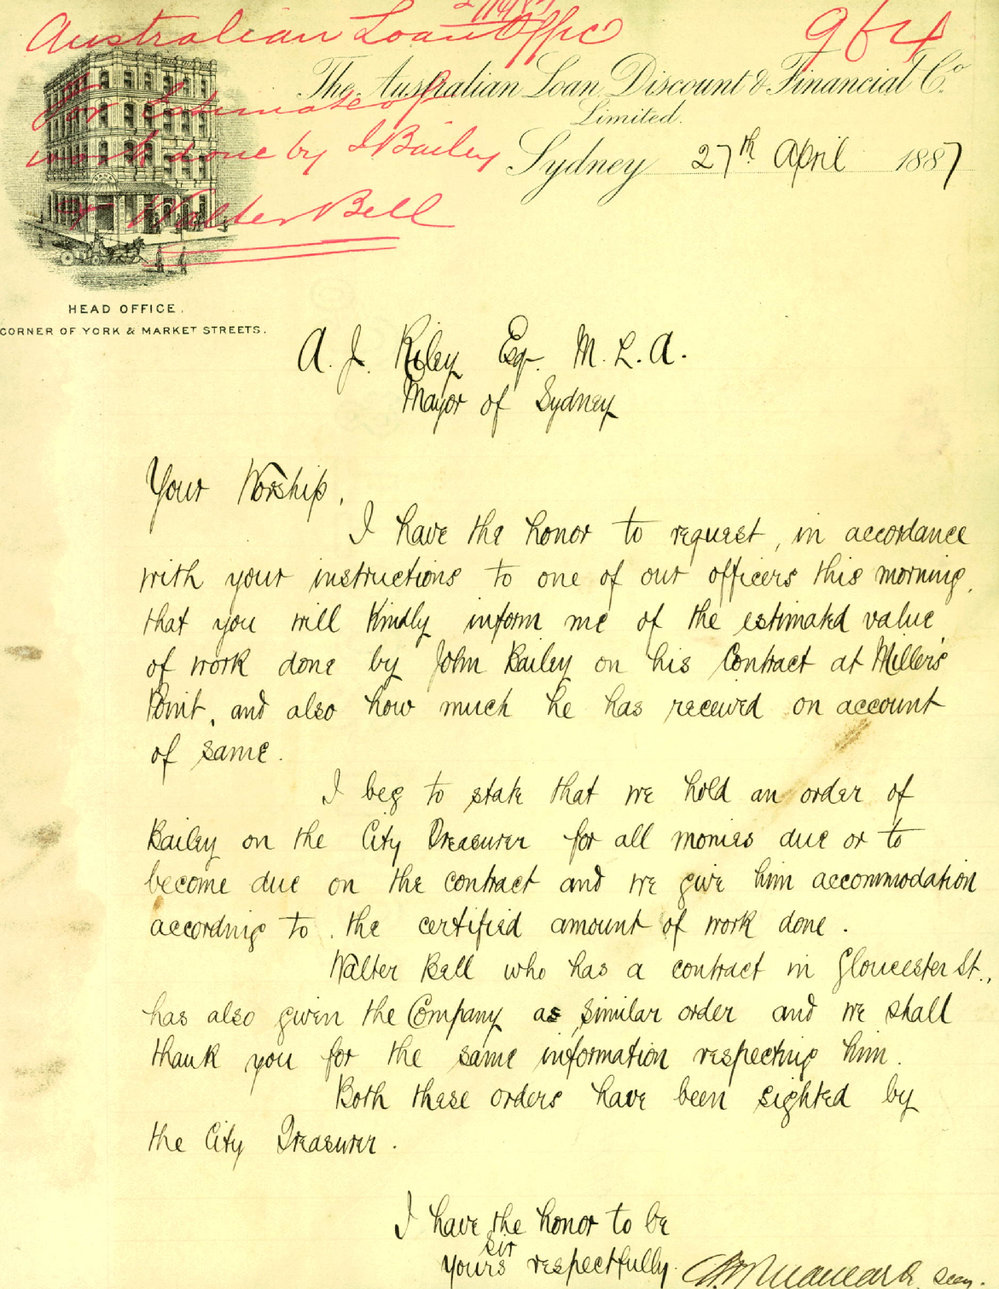 Australian Loan Office
964
For Estimates of
work done by J Bailey
& Walter Bell
The Australian Loan, Discount & Financial Co.
Limited.
Sydney 27th April 1887
HEAD OFFICE.
CORNER OF YORK & MARKET STREETS.
A. J. Riley Esq. M. L. A.
Mayor of Sydney
Your Worship,
I have the honor to request, in accordance
with your instructions to one of our officers this morning,
that you will kindly inform me of the estimated value
of work done by John Bailey on his Contract at Miller's
Point, and also how much he has received on account
of same.
I beg to state that we hold an order of
Bailey on the City Treasurer for all monies due or to
become due on the contract and we give him accommodation
according to the certified amount of work done.
Walter Bell who has a contract in Gloucester St.,
has also given the Company a similar order and we shall
thank you for the same information respecting him.
Both these orders have been sighted by
the City Treasurer.
I have the honor to be
sir
yours respectfully
Secy.